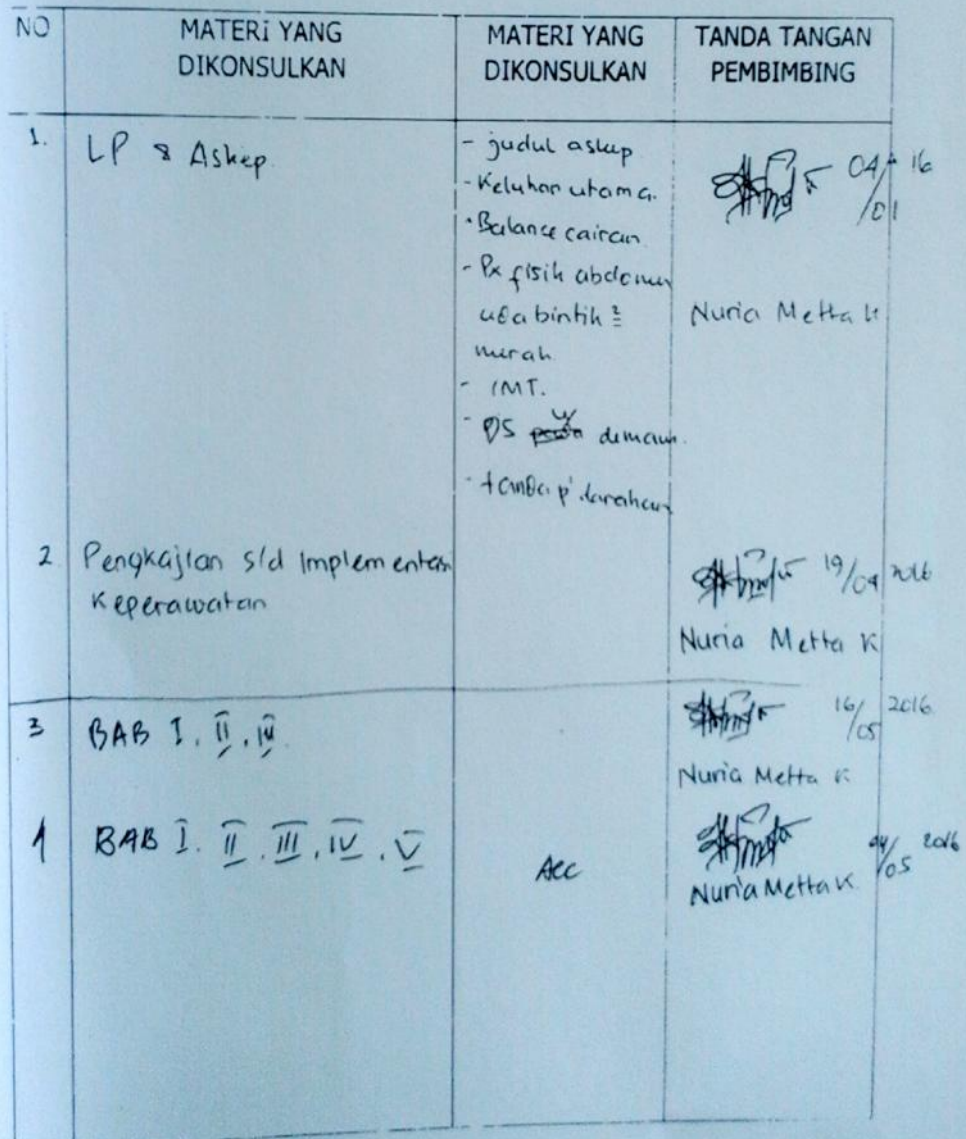 NO
MATERI YANG
DIKONSULKAN
MATERI YANG
DIKONSULKAN
TANDA TANGAN
PEMBIMBING
1.
LP & Askep.
- judul askep
- Keluhan utama.
- Balance cairan
- Px fisik abdomen
bintik²
merah
- IMT.
- DS demam.
- tanda
04/01 16
Nuria Metta K
2.
Pengkajian s/d Implementasi
Keperawatan
19/04 2016
Nuria Metta K
3
BAB I. II. IV.
16/05 2016
Nuria Metta K
BAB I. II. III. IV. V
Acc
/05 2016
Nuria Metta K.